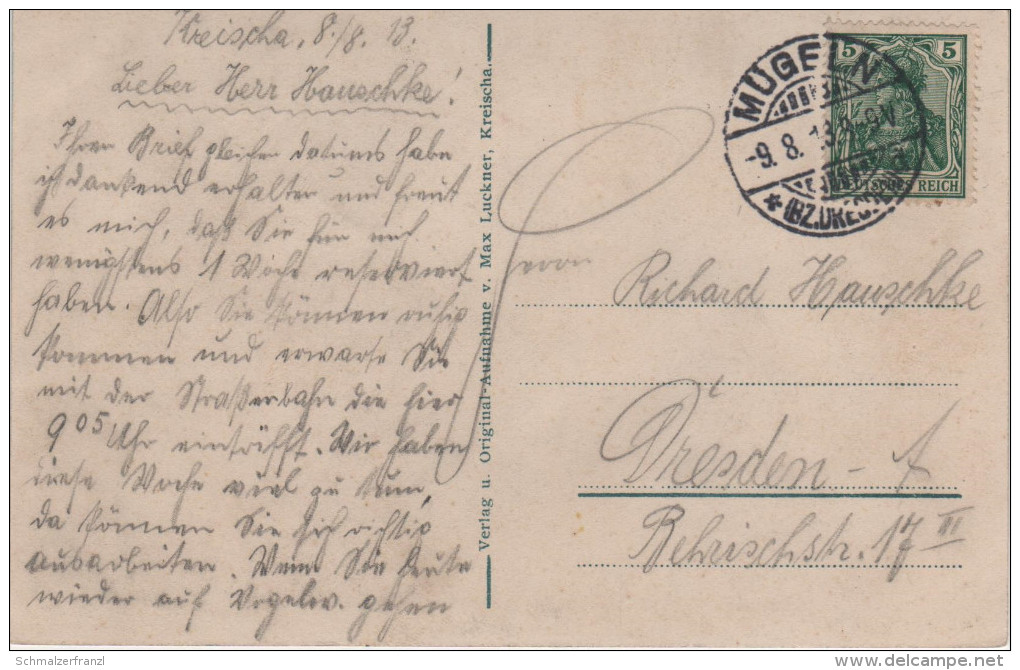 Kreischa, 8./8. 13.
Lieber Herr Hauschke!
Ihren Brief gleichen datums habe
ich dankend erhalten und freut
es mich, daß Sie für noch
wenigstens 1 Woche reserviert
haben. Also Sie können ruhig
kommen und erwarte Sie
mit der Straßenbahn die hier
9 05 Uhr eintrifft. Wir haben
diese Woche viel zu tun,
da können Sie sich richtig
ausarbeiten. Wenn Sie heute
wieder auf Vogelw. gehen
Verlag u. Original-Aufnahme v. Max Luckner, Kreischa.
MÜGELN
-9. 8. 13. 8-9V
* (BZ. DRESDEN)
5 5
DEUTSCHES REICH
Herrn
Richard Hauschke
Dresden - A
Behrischstr. 17 III
Schmalzerfranzl
delcampe.net